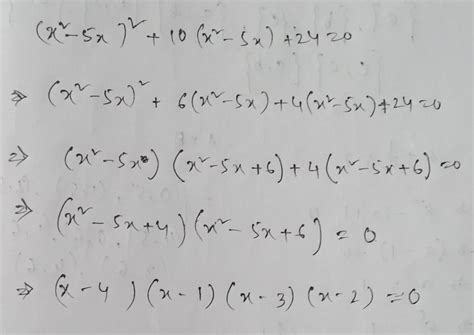 (x² - 5x)² + 10(x² - 5x) + 24 = 0
⇒ (x² - 5x)² + 6(x² - 5x) + 4(x² - 5x) + 24 = 0
⇒ (x² - 5x) (x² - 5x + 6) + 4(x² - 5x + 6) = 0
⇒ (x² - 5x + 4) (x² - 5x + 6) = 0
⇒ (x - 4) (x - 1) (x - 3) (x - 2) = 0